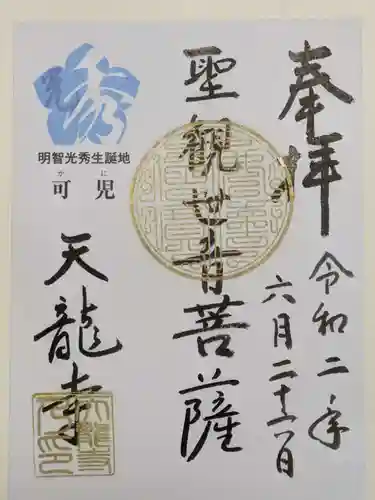 奉拝
令和二年
六月二十二日
聖観世音菩薩
明智光秀生誕地
かに
可児
天龍寺